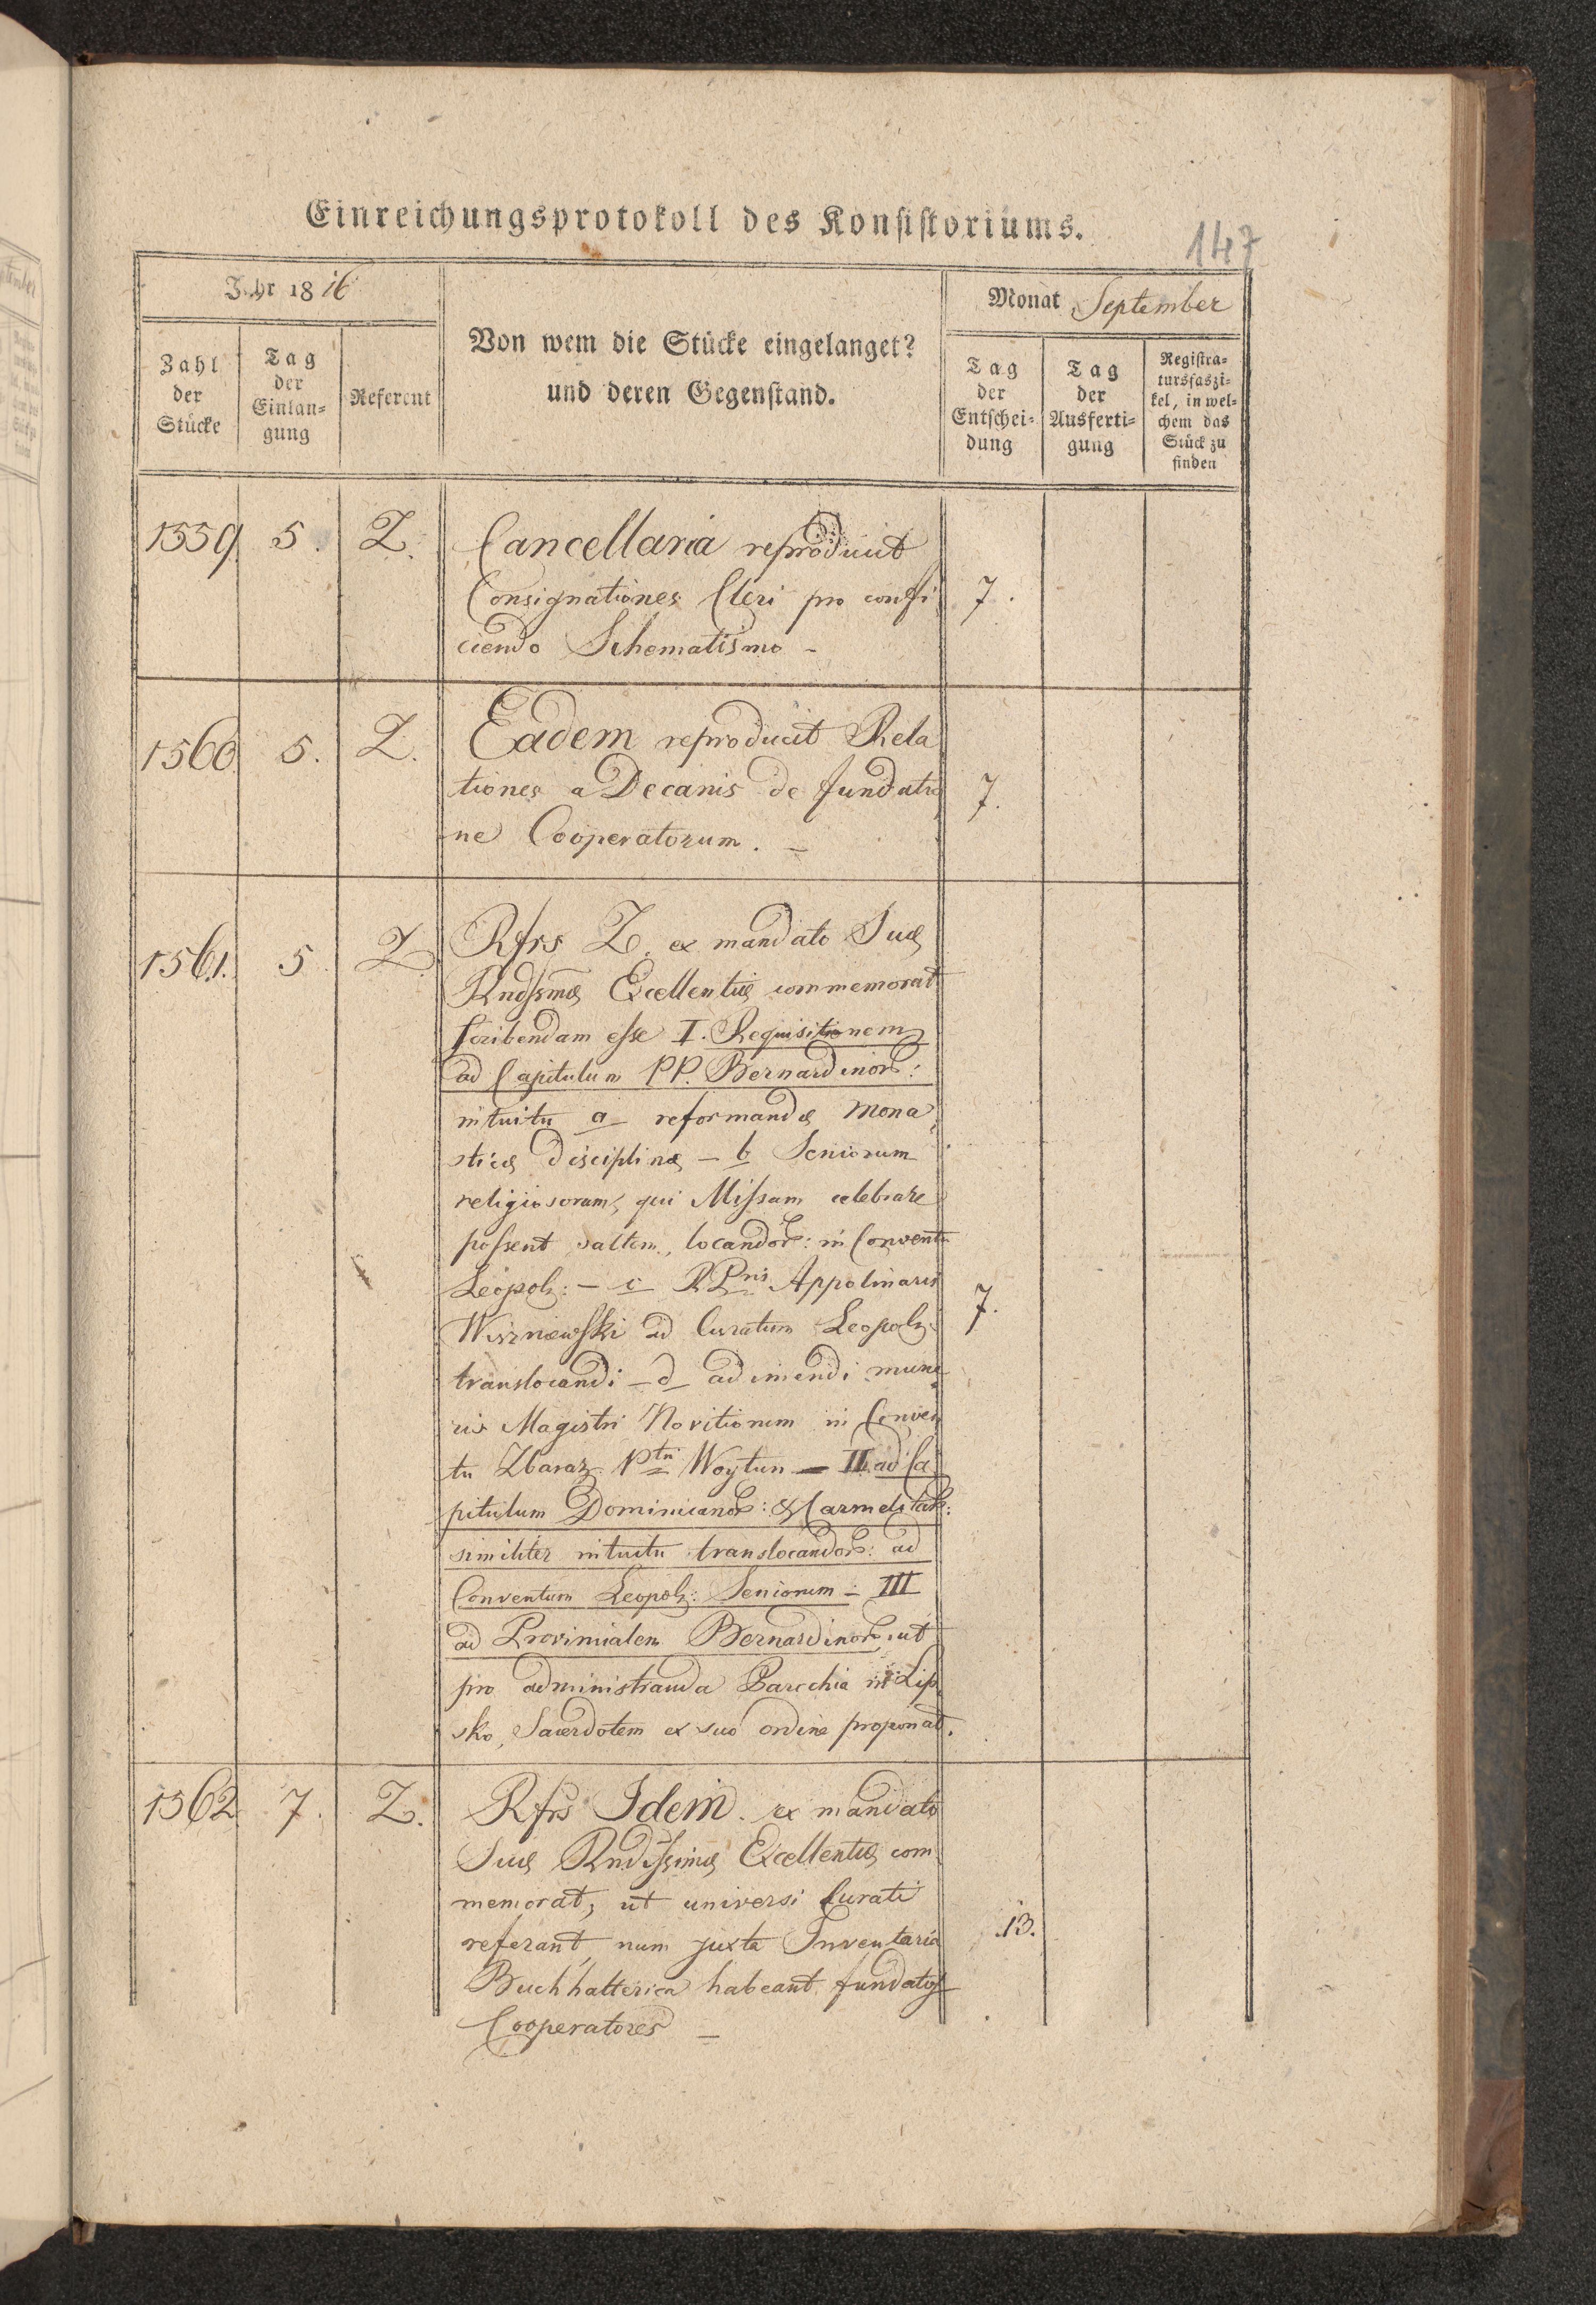 Einreichungsprotokoll des Konsistoriums.
147
Jahr 1816
Monat September
Zahl der Stücke
Tag der Einlangung
Referent
Von wem die Stücke eingelanget?
und deren Gegenstand.
Tag der Entscheidung
Tag der Ausfertigung
Registratursfaszikel, in welchem das Stück zu finden
1559 5. Z. Cancellaria reproducit
Consignationes Cleri pro confi 7.
ciendo Schematismo –
1560 5. Z. Eadem reproducit Rela
tiones a Decanis de fundatio 7.
ne Cooperatorum. –
1561. 5 Z. Rfrs Z. ex mandato Suæ
Rndssmæ Excellentiæ commemorat
scribendam esse I. Requisitionem
ad Capitulum PP. Bernardinor:
intuitu a reformandæ Mona
sticæ disciplinæ – b Seniorum
religiosorum, qui Missam celebrare
possent saltem, locandor: in Conventu
Leopol: – c RPris Appolinaris
Wiszniewski ad Curatum Leopol: 7.
translocandi – d adimendi mune
ris Magistri Novitiorum in Conven
tu Zbaraz. Ptri Woytun – II ad Ca
pitulum Dominicanor: & Carmelitar:
similiter intuitu translocandor: ad
Conventum Leopol: Seniorum – III
ad Provincialem Bernardinor: ut
pro administranda Parochia in Lip
sko, Sacerdotem ex suo ordine proponat.
1562 7. Z. Rfrs Idem. ex mandato
Suæ Rndissimæ Excellentiæ com
memorat, ut universi Curati
referant, num juxta Inventaria 13.
Buchhalterica habeant fundatos
Cooperatores –